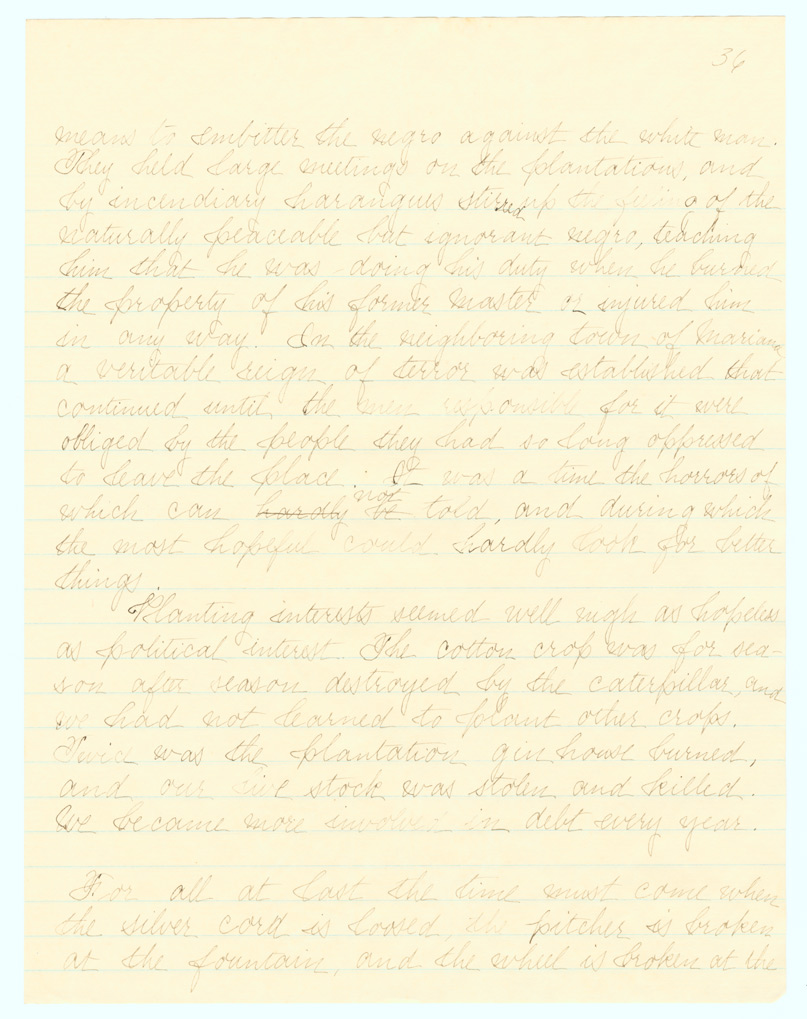 36
means to embitter the negro against the white man.
They held large meetings on the plantations, and
by incendiary harangues stirred up the feeling of the
naturally peaceable but ignorant negro, teaching
him that he was doing his duty when he burned
the property of his former master or injured him
in any way. In the neighboring town of Marianna
a veritable reign of terror was established that
continued until the men responsible for it were
obliged by the people they had so long oppressed
to leave the place. It was a time the horrors of
which can hardly not be told, and during which
the most hopeful could hardly look for better
things.
Planting interests seemed well nigh as hopeless
as political interest. The cotton crop was for sea-
son after season destroyed by the caterpillar, and
we had not learned to plant other crops.
Twice was the plantation gin house burned,
and our live stock was stolen and killed.
We became more involved in debt every year.
For all at last the time must come when
the silver cord is loosed, the pitcher is broken
at the fountain, and the wheel is broken at the